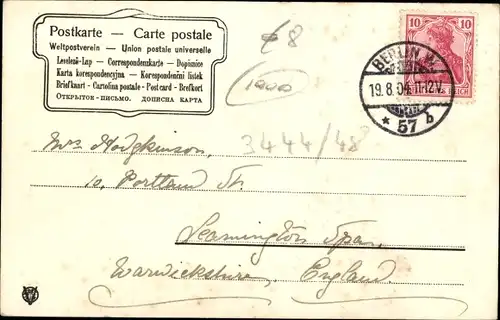 Postkarte — Carte postale
Weltpostverein — Union postale universelle
Levelező-Lap — Correspondenzkarte — Dopisnice
Karta korespondencyjna — Korespondenční lístek
Briefkaart — Cartolina postale — Postcard — Brefkort
Открытое письмо. Дописна карта
€8
1900
3444/48
10 10
BERLIN W.
19.8.04. 11-12V.
* 57 b
REICH
Mrs Hodgkinson,
10, Portland St.
Leamington Spa,
Warwickshire, England.